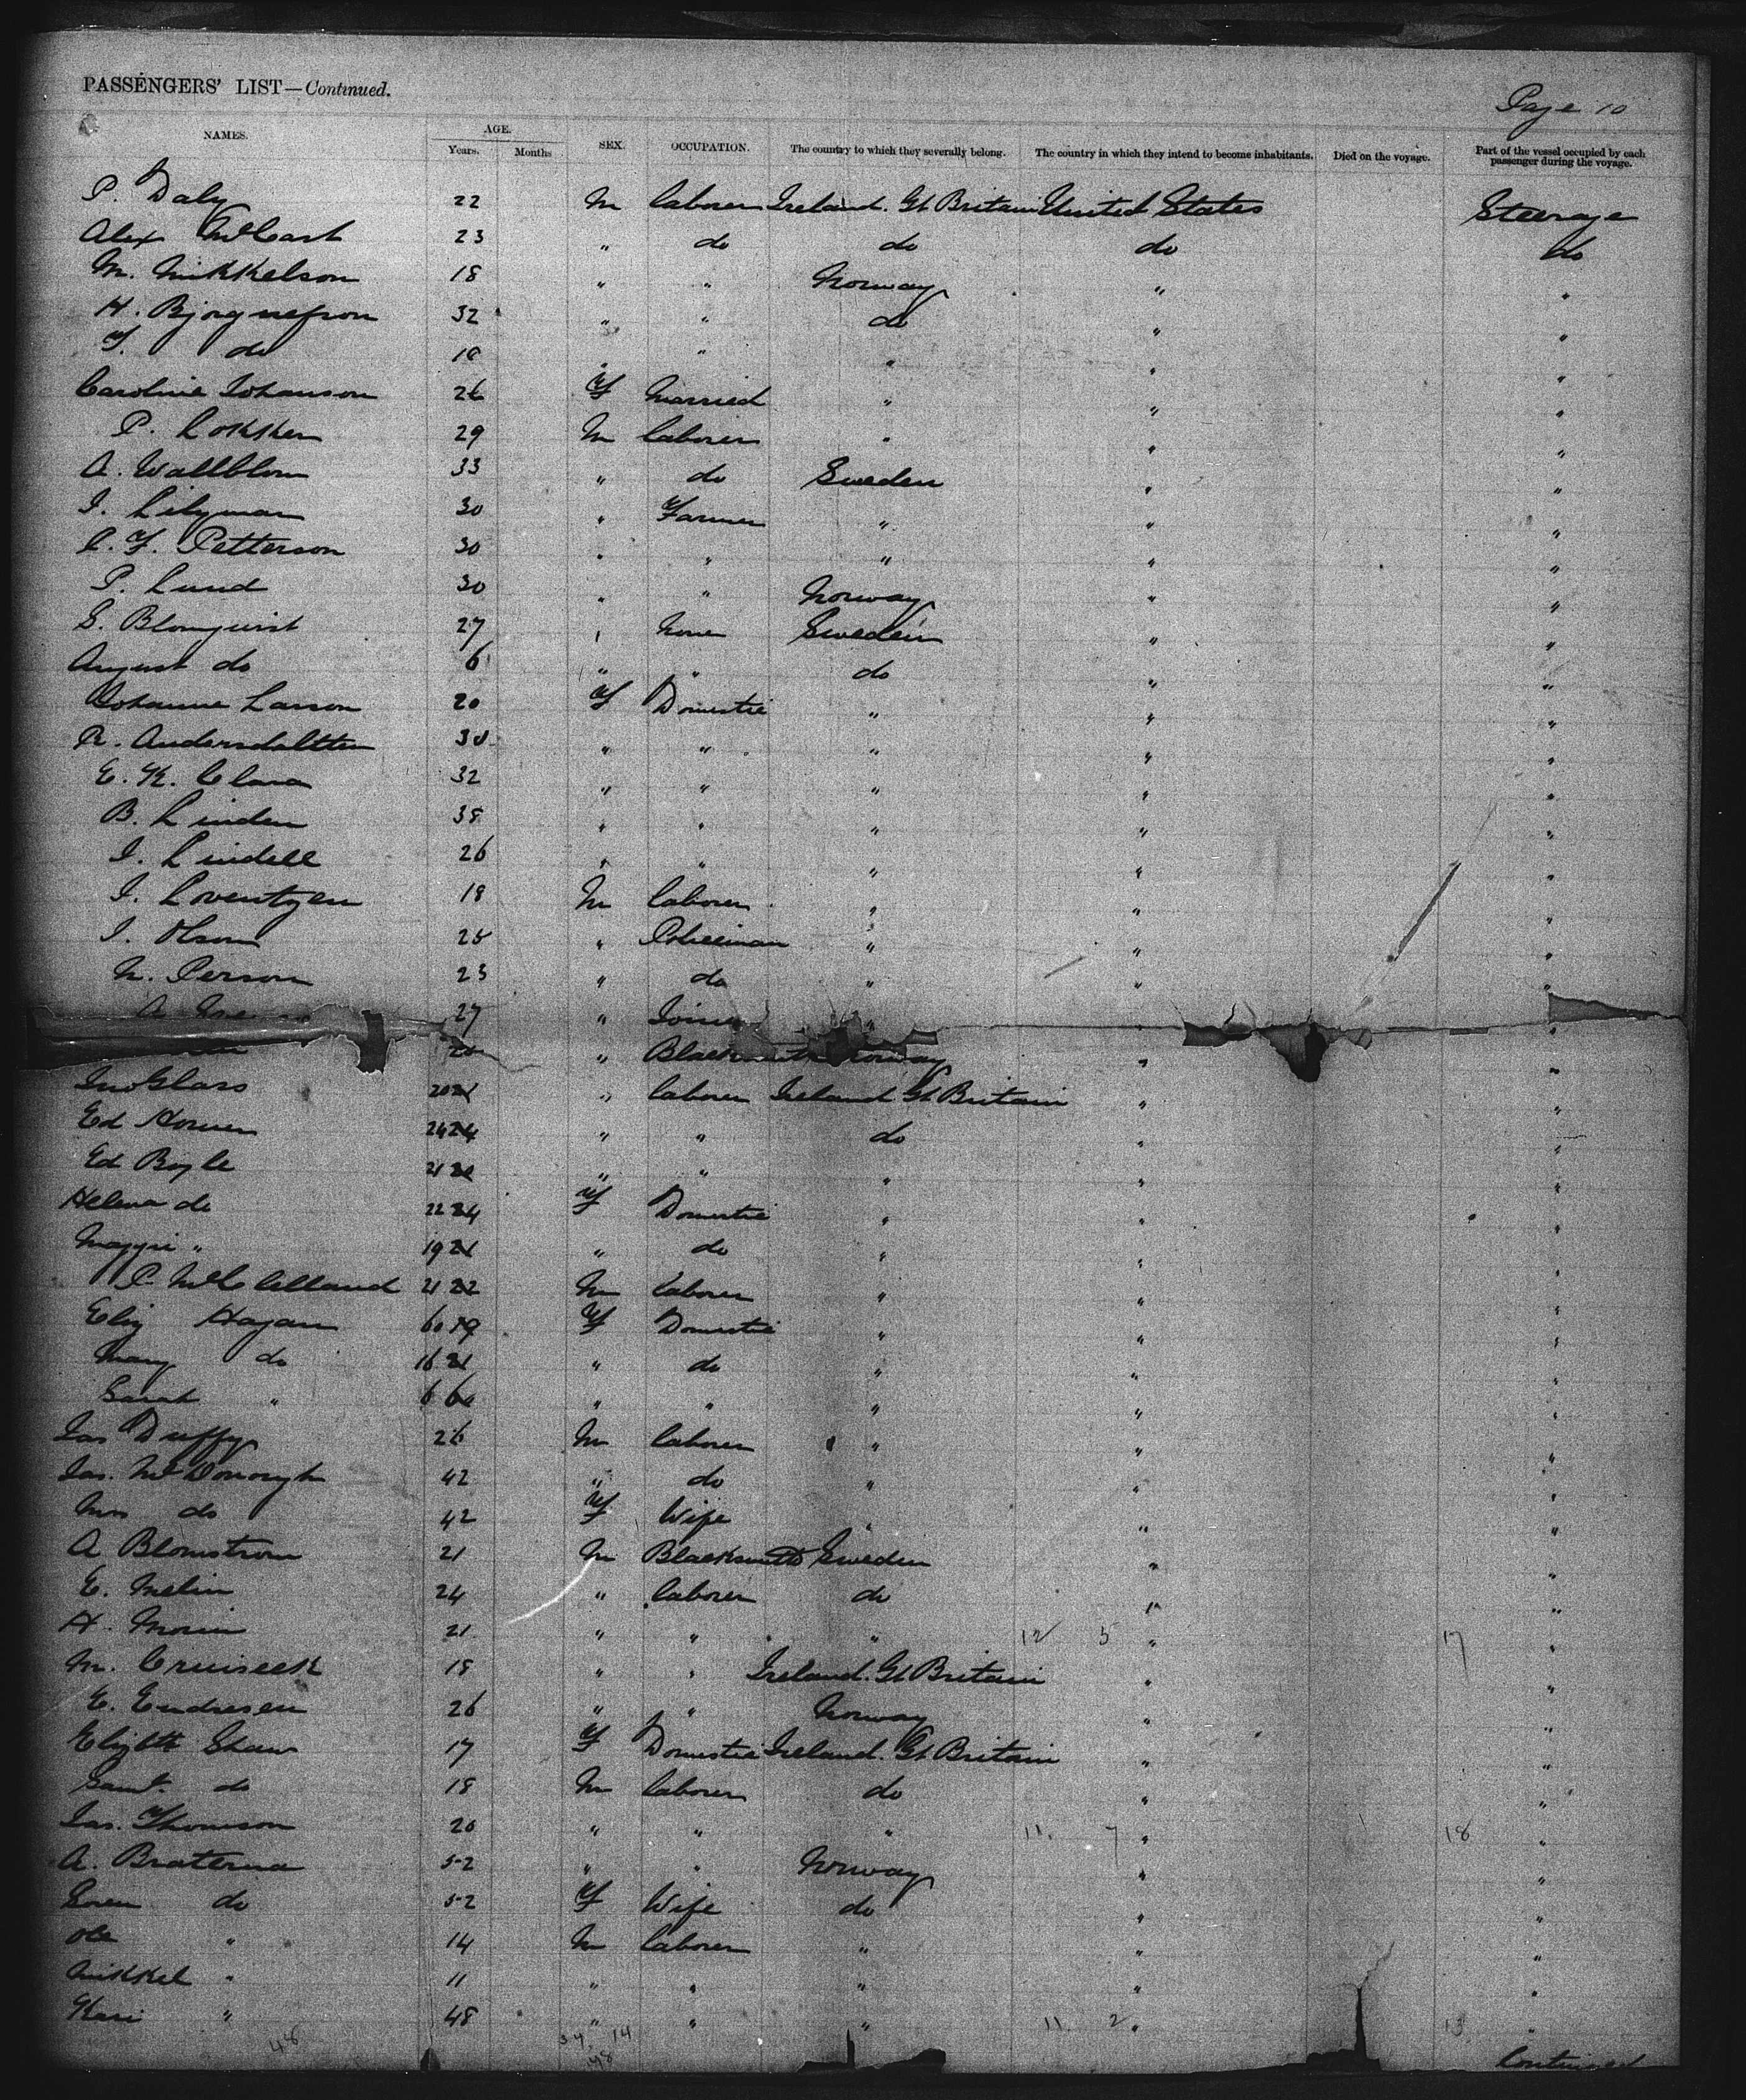 PASSENGERS' LIST—Continued. Page 10
NAMES. AGE. Years. Months SEX. OCCUPATION. The country to which they severally belong. The country in which they intend to become inhabitants. Died on the voyage. Part of the vessel occupied by each passenger during the voyage.
P. Daly 22 M laborer Ireland. Gt Britain United States Steerage
Alex McCart 23 " do do do do
M. Mikkelson 18 " " Norway " "
H. Bjorgnesson 32 " " do " "
T. do 18 " " " " "
Caroline Johanson 26 F Married " " "
P. Lokken 29 M laborer " " "
A. Wallblom 33 " do Sweden " "
I. Lilyman 30 " Farmer " " "
C. F. Petterson 30 " " " " "
P. Lund 30 " " Norway " "
S. Blomquist 27 " None Sweden " "
August do 6 " " do " "
Johanne Larson 20 F Domestic " " "
R. 30 " " " " "
E. K. Clara 32 " " " " "
B. Linden 38 " " " " "
I. Lindell 26 " " " " "
I. Loventzen 18 M laborer " " "
I. Olson 25 " Policeman " " "
N. Person 23 " do " " "
A 27 " Joiner " " "
" Blacksmith Norway " "
Jno Glass 20 21 " laborer Ireland Gt Britain " "
Ed 24 24 " " do " "
Ed Boyle 21 " " " " "
Helena do 22 24 F Domestic " " "
Maggie " 19 21 " do " " "
P. McClelland 21 22 M laborer " " "
Eliz Hagan 60 19 F Domestic " " "
Mary do 16 21 " do " " "
Sarah " 6 60 " " " " "
Jas Duffy 26 M laborer " " "
Jas. McDonough 42 " do " " "
Mrs do 42 F Wife " " "
A Blomstrom 21 M Blacksmith Sweden " "
E. Melin 24 " laborer do " "
H. Morin 21 " " " 12 5 " 17 "
M. Cruiseek 18 " " Ireland. Gt Britain " "
E. Endresen 26 " " Norway " "
Elizbth Shaw 17 F Domestic Ireland. Gt Britain " "
Saml. do 18 M laborer do " "
Jas. Thomson 20 " " " 11. 7 " 18 "
A. Braterna 52 " " Norway " "
Soren do 52 F Wife do " "
Ole " 14 M laborer " " "
Mikkel " 11 " " " " "
Kari " 48 " " " 11. 2 " 13 "
48 34 14
48
Continued